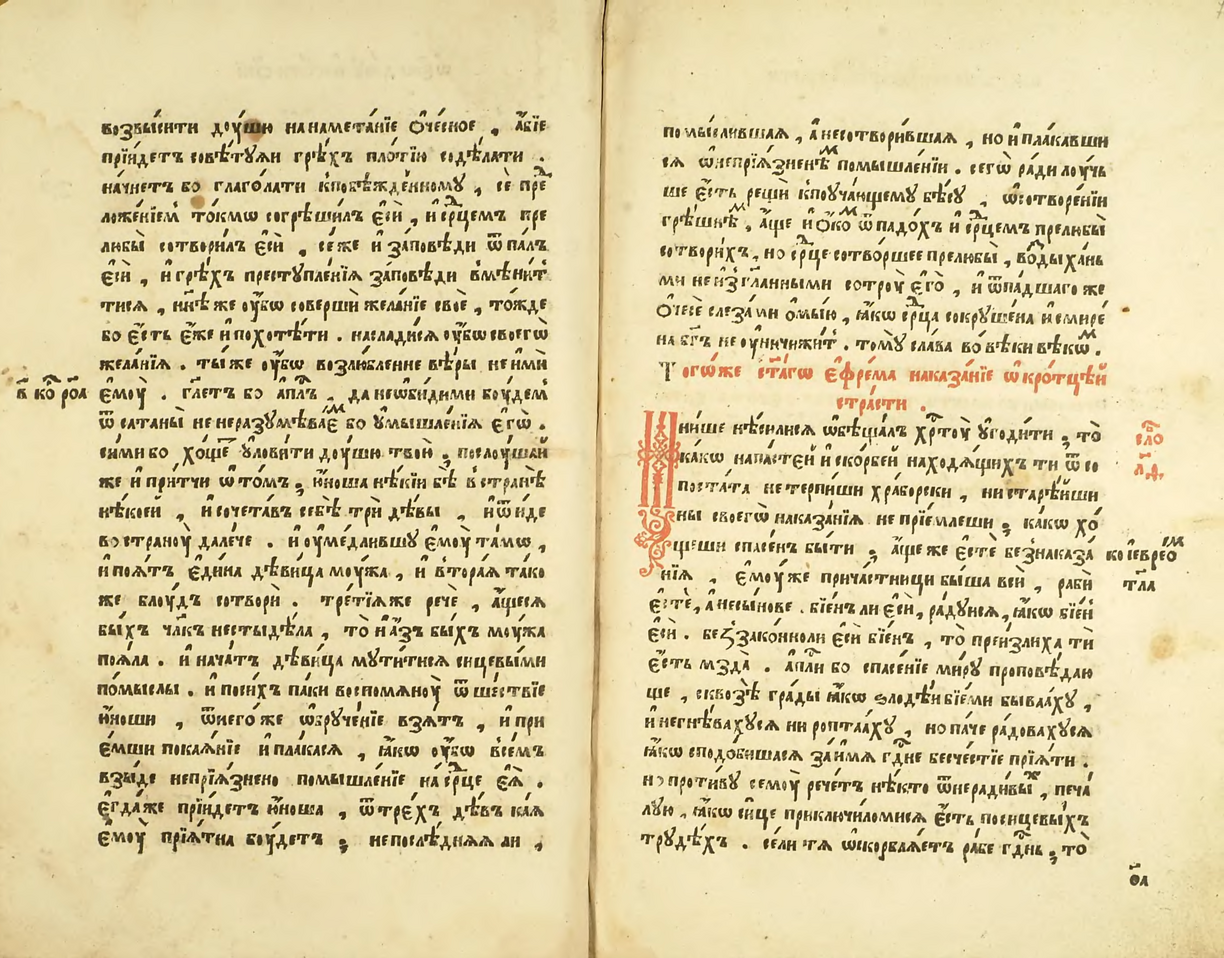 возвы́сити доу́шю на наметанїе ѻ҆че́сное , а҆бїе
прїи́детъ совѣ́тꙋѧи грѣ́хъ пло́тїю содѣ́лати .
на́чнетъ бо глаго́лати кпобѣжде́нномꙋ , се́ пре
ложе́нїемъ то́кмѡ согрѣши́лъ є҆сѝ , и҆ срⷣцемъ пре
любы̀ сотвори́лъ є҆сѝ , се́ же и҆ за́повѣди ѿпа́лъ
є҆сѝ , и҆ грѣ́хъ престꙋпле́нїѧ за́повѣди вмѣни́т
тисѧ , нн҃ѣ же ᲂу҆́бѡ совершѝ жела́нїе своѐ , то́жде
бо є҆́сть є҆́же и҆ похотѣ́ти . наслади́сѧ ᲂу҆́бѡ своегѡ̀
жела́нїѧ . ты́ же ᲂу҆́бѡ возлю́бление вѣ́ры не и҆мѝ
в҃ ко роа
є҆моу̀ . гл҃етъ бо а҆пⷭ҇лъ , да неѡ҆би́дими бо́удем
ѿ сатаны̀ не неразꙋмѣ́ваеⷨ бо ᲂу҆мышле́нїѧ є҆гѡ̀ .
си́ми бо хо́щеⷮ ᲂу҆лови́ти доу́шю твою̀ ; послоу́шаи
же и҆ при́тчи ѡ҆ то́мъ ; ю҆́ноша нѣ́кїи бѣ̀ в странѣ̀
нѣ́коей , и҆ сочета́въ себѣ̀ трѝ дѣ́вы , и҆ ѿи́де
во страноу̀ дале́че . и҆ ᲂу҆медли́вшꙋ є҆моу̀ та́мѡ ,
и҆ поѧ́тъ є҆ди́на дѣ́вица моу́жа , и҆ втора́ѧ та́ко
же блоу́дъ сотворѝ . тре́тїѧже речѐ , а҆́щесѧ
бы́хъ чл҃къ нестыдѣ́ла , то и҆ а҆́зъ бы́хъ моу́жа
поѧ́ла . и҆ нача́тъ дѣ́вица мꙋти́тисѧ сицевы́ми
по́мыслы . и҆ поси́хъ па́ки воспомѧноу̀ ѿше́ствїе
ю҆́ноши , ѿнего́же ѡ҆брꙋче́нїе взѧ́тъ , и҆ при
є҆́мши покаѧ́нїе и҆ пла́касѧ , ꙗ҆́кѡ ᲂу҆́бѡ все́мъ
взы́де непрїѧ́знено помышле́нїе на срⷣце є҆ѧ̀ .
є҆гда́же прїи́детъ ю҆́ноша , ѿ тре́хъ дѣ́въ ка́ѧ
є҆моу̀ прїѧ́тна бо́удетъ ; не послѣ́днѧѧ ли ,
помы́слившаѧ , а҆ несотвори́вшаѧ , но и҆ пла́кавши
сѧ ѡ҆ непрїѧ́зненѣⷨ помышле́нїи . сегѡ̀ ра́ди лоу́чь
ше є҆́сть рещѝ кпоꙋча́ющемꙋ бѣ́сꙋ , ѡ҆ сотворе́нїи
грѣ́шнѣⷨ , а҆́ще и҆ ѻ҆́коⷨ ѿпадо́хъ и҆ срⷣцемъ прелюбы̀
сотвори́хъ , но срⷣце сотво́ршее прелюбы̀ , воды́хань
ми не и҆згл҃анными сотроу̀ є҆го̀ , и҆ ѿпа́дшаго же
ѻ҆́чесѐ слеза́ми ѡ҆мы́ю , ꙗ҆́кѡ срⷣца сокрꙋше́на и҆ смире
на бг҃ъ не оу҆ничижи́т . томꙋ̀ сла́ва во вѣ́ки вѣ́кѡⷨ .
Тогѡ́же ст҃а́гѡ є҆фре́ма наказа́нїе ѡ҆ кро́тцѣй
стра́сти .
Ни́ще нѣ́силисѧ ѡ҆бѣща́лъ хрⷭ҇тоу̀ ᲂу҆годи́ти ; то
сло
л҃д
ка́кѡ напа́стей и҆ ско́рбей находѧ́щихъ ти ѿ со
поста́та не терпи́ши хра́борски , ни старѣ́йши
ны своегѡ̀ наказа́нїѧ не прїе́млеши ; ка́кѡ хо́
щеши спасе́нъ бы́ти ; а҆́ще же є҆стѐ без наказа́
ко євреоⷨ
нїѧ , є҆моу́же прича́стници бы́ша всѝ , рабѝ
тла
є҆стѐ , а҆ несы́нове . бїе́нъ ли є҆сѝ , ра́дꙋисѧ , ꙗ҆́кѡ бїе́н
є҆сѝ . беззако́нноли є҆сѝ бїе́нъ , то́ преизли́ха ти
є҆́сть мзда̀ . а҆пⷭ҇ли бо спасе́нїе ми́рꙋ проповѣ́даю
ще , сквозѣ̀ гра́ды ꙗ҆́кѡ ѕлодѣ́и бїе́ми быва́ахꙋ ,
и҆ негнѣ́вахꙋсѧ ни ропта́ахꙋ , но па́че ра́довахꙋсѧ
ꙗ҆́кѡ сподо́бишасѧ за́ имѧ гдⷭ҇не бесче́стїе прїѧ́ти .
но проти́вꙋ семоу̀ рече́тъ нѣ́кто ѿнеради́выⷯ , печа́
лꙋю , ꙗ҆́кѡ си́це приключи́ломисѧ є҆́сть посицевы́хъ
трꙋдѣ́хъ . се́ли тѧ ѡ҆скорблѧ́етъ ра́бе гдⷭ҇нь ; то̀
ѳ҃а